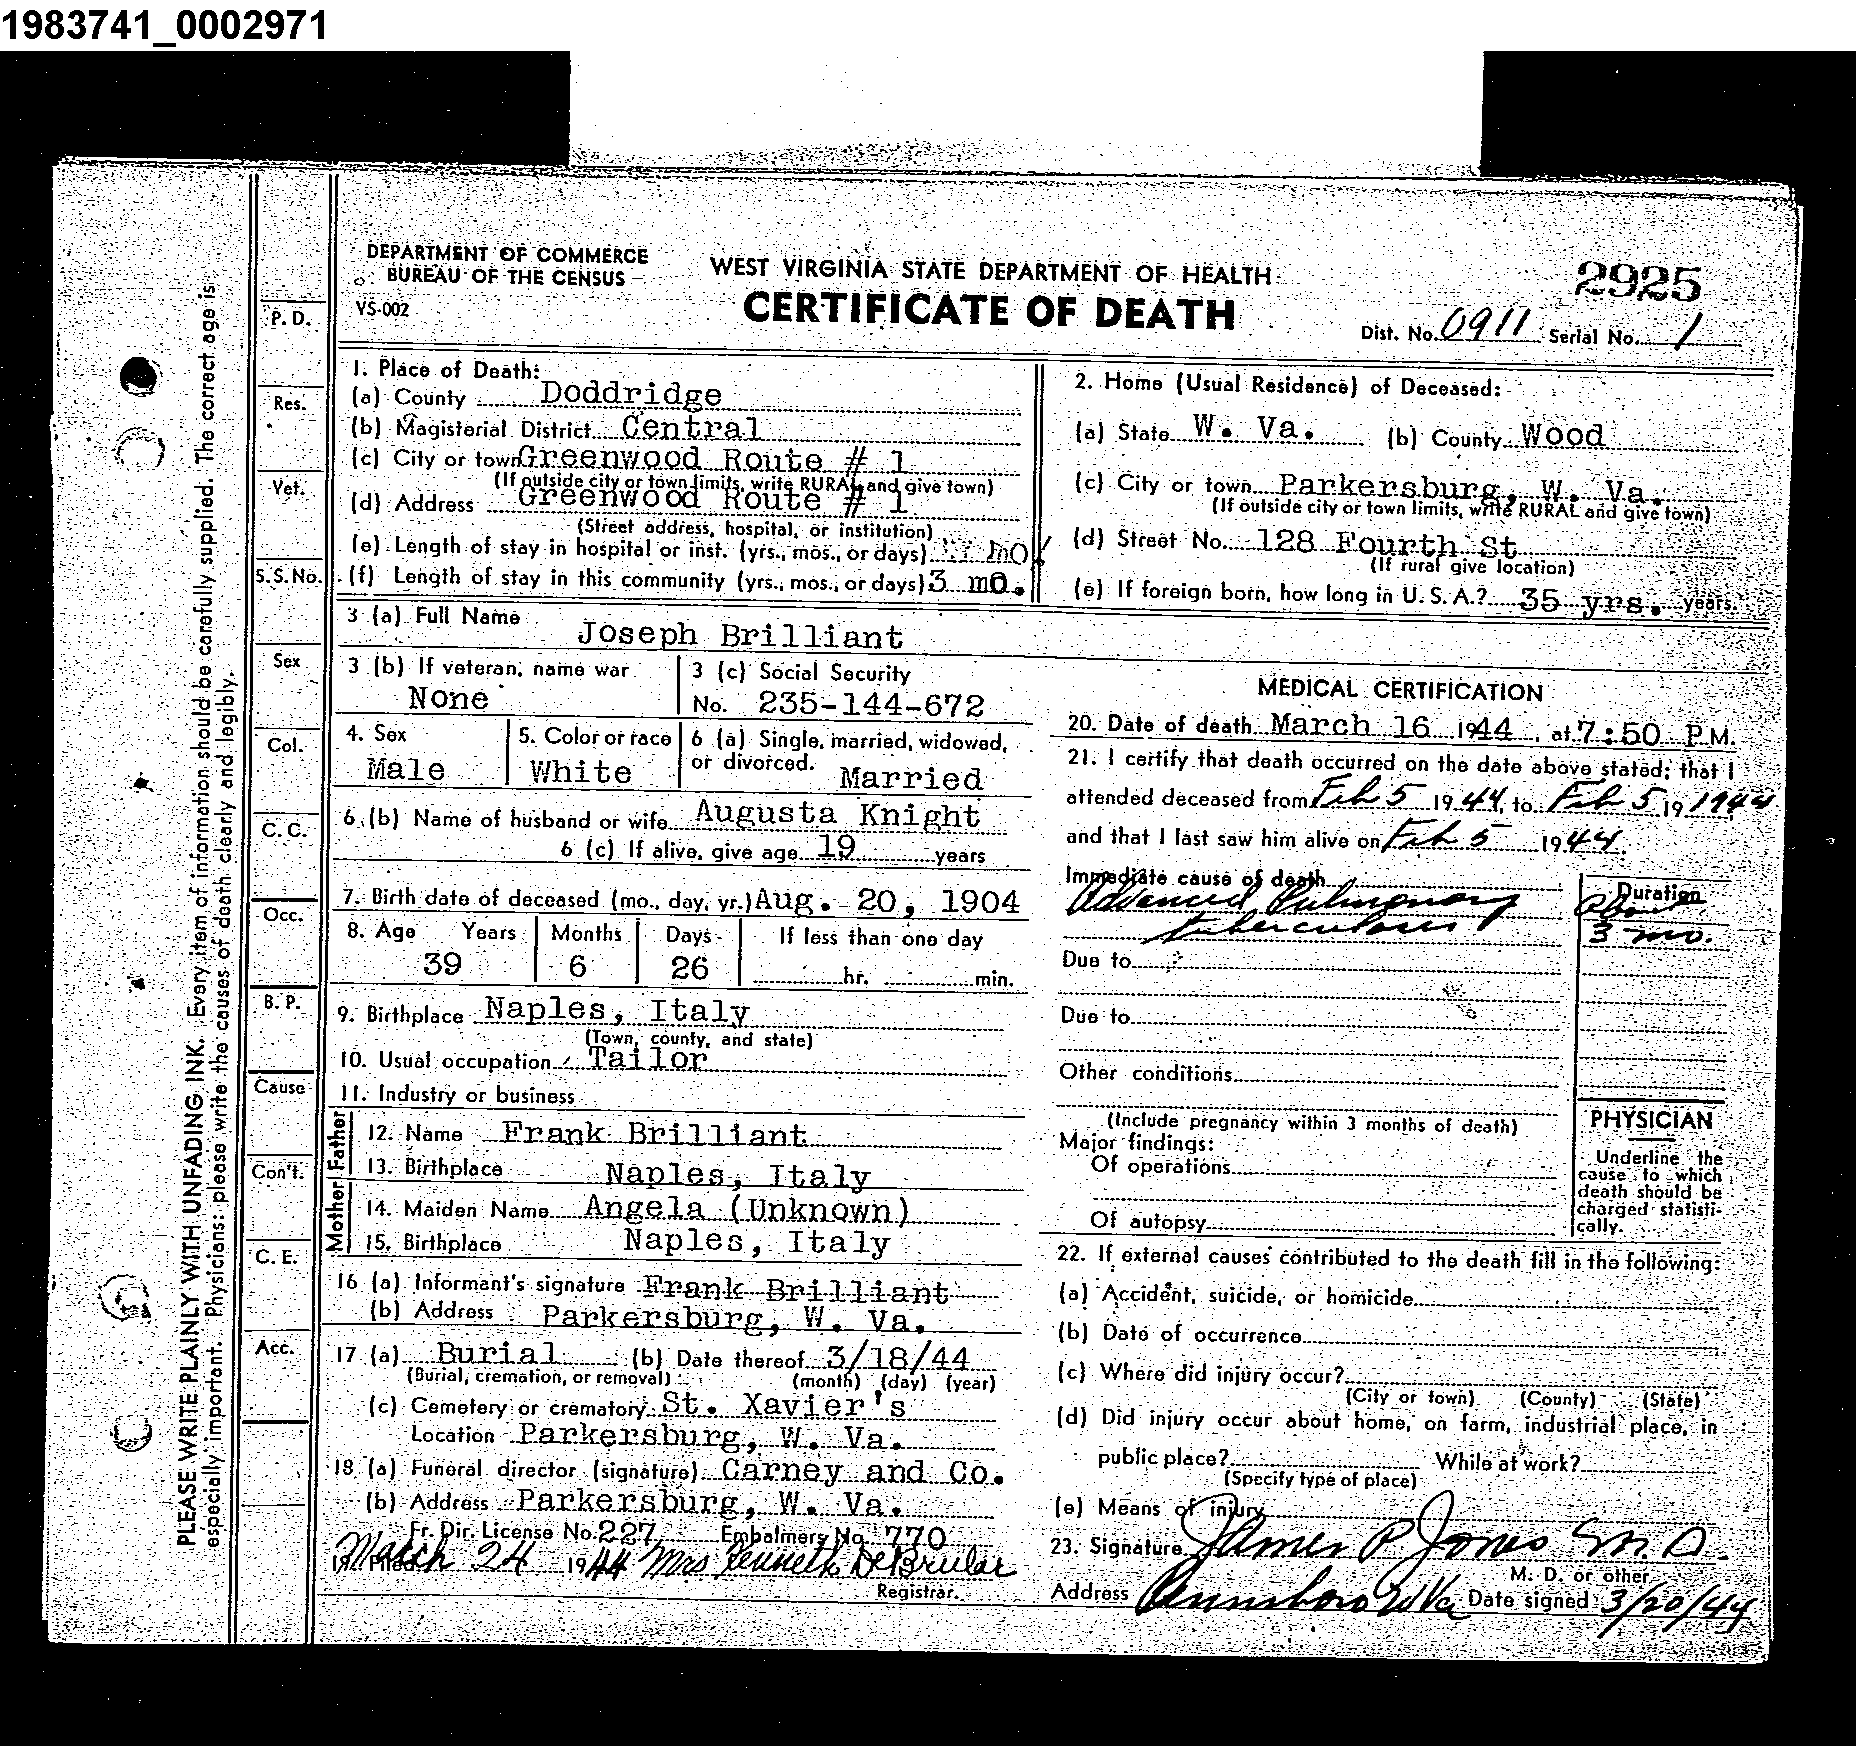 1983741_0002971
DEPARTMENT OF COMMERCE
BUREAU OF THE CENSUS
VS-002
WEST VIRGINIA STATE DEPARTMENT OF HEALTH
CERTIFICATE OF DEATH
2925
Dist. No. 0911 Serial No. 1
PLEASE WRITE PLAINLY WITH UNFADING INK. Every item of information should be carefully supplied. The correct age is
especially important. Physicians: please write the causes of death clearly and legibly.
P. D.
Res.
Vet.
S. S. No.
Sex
Col.
C. C.
Occ.
B. P.
Cause
Con't.
C. E.
Acc.
1. Place of Death:
(a) County Doddridge
(b) Magisterial District Central
(c) City or town Greenwood Route # 1
(If outside city or town limits, write RURAL and give town)
(d) Address Greenwood Route # 1
(Street address, hospital, or institution)
(e) Length of stay in hospital or inst. (yrs., mos., or days) mo
(f) Length of stay in this community (yrs., mos., or days) 3 mo.
2. Home (Usual Residence) of Deceased:
(a) State W. Va. (b) County Wood
(c) City or town Parkersburg, W. Va.
(If outside city or town limits, write RURAL and give town)
(d) Street No. 128 Fourth St
(If rural give location)
(e) If foreign born, how long in U. S. A.? 35 yrs. years.
3 (a) Full Name Joseph Brilliant
3 (b) If veteran, name war
None
3 (c) Social Security
No. 235-144-672
4. Sex
Male
5. Color or race
White
6 (a) Single, married, widowed,
or divorced. Married
6 (b) Name of husband or wife Augusta Knight
6 (c) If alive, give age 19 years
7. Birth date of deceased (mo., day, yr.) Aug. 20, 1904
8. Age Years Months Days If less than one day
39 6 26 hr. min.
9. Birthplace Naples, Italy
(Town, county, and state)
10. Usual occupation Tailor
11. Industry or business
Father
12. Name Frank Brilliant
13. Birthplace Naples, Italy
Mother
14. Maiden Name Angela (Unknown)
15. Birthplace Naples, Italy
16 (a) Informant's signature Frank Brilliant
(b) Address Parkersburg, W. Va.
17 (a) Burial (b) Date thereof 3/18/44
(Burial, cremation, or removal) (month) (day) (year)
(c) Cemetery or crematory St. Xavier's
Location Parkersburg, W. Va.
18 (a) Funeral director (signature) Carney and Co.
(b) Address Parkersburg, W. Va.
Fr. Dir. License No. 227 Embalmers No. 770
19. Filed March 24 1944 Mrs Kenneth DeBrular
Registrar.
MEDICAL CERTIFICATION
20. Date of death March 16 1944, at 7:50 P.M.
21. I certify that death occurred on the date above stated; that I
attended deceased from Feb 5 1944, to Feb 5 19 1944
and that I last saw him alive on Feb 5 1944.
Immediate cause of death Duration
Advanced Pulmonary about
tuberculosis 3 mo.
Due to
Due to
Other conditions
(Include pregnancy within 3 months of death)
Major findings:
Of operations
Of autopsy
PHYSICIAN
Underline the
cause to which
death should be
charged statisti-
cally.
22. If external causes contributed to the death fill in the following:
(a) Accident, suicide, or homicide
(b) Date of occurrence
(c) Where did injury occur?
(City or town) (County) (State)
(d) Did injury occur about home, on farm, industrial place, in
public place? While at work?
(Specify type of place)
(e) Means of injury
23. Signature James P Jones M. D.
M. D. or other
Address Pennsboro W Va Date signed 3/20/44